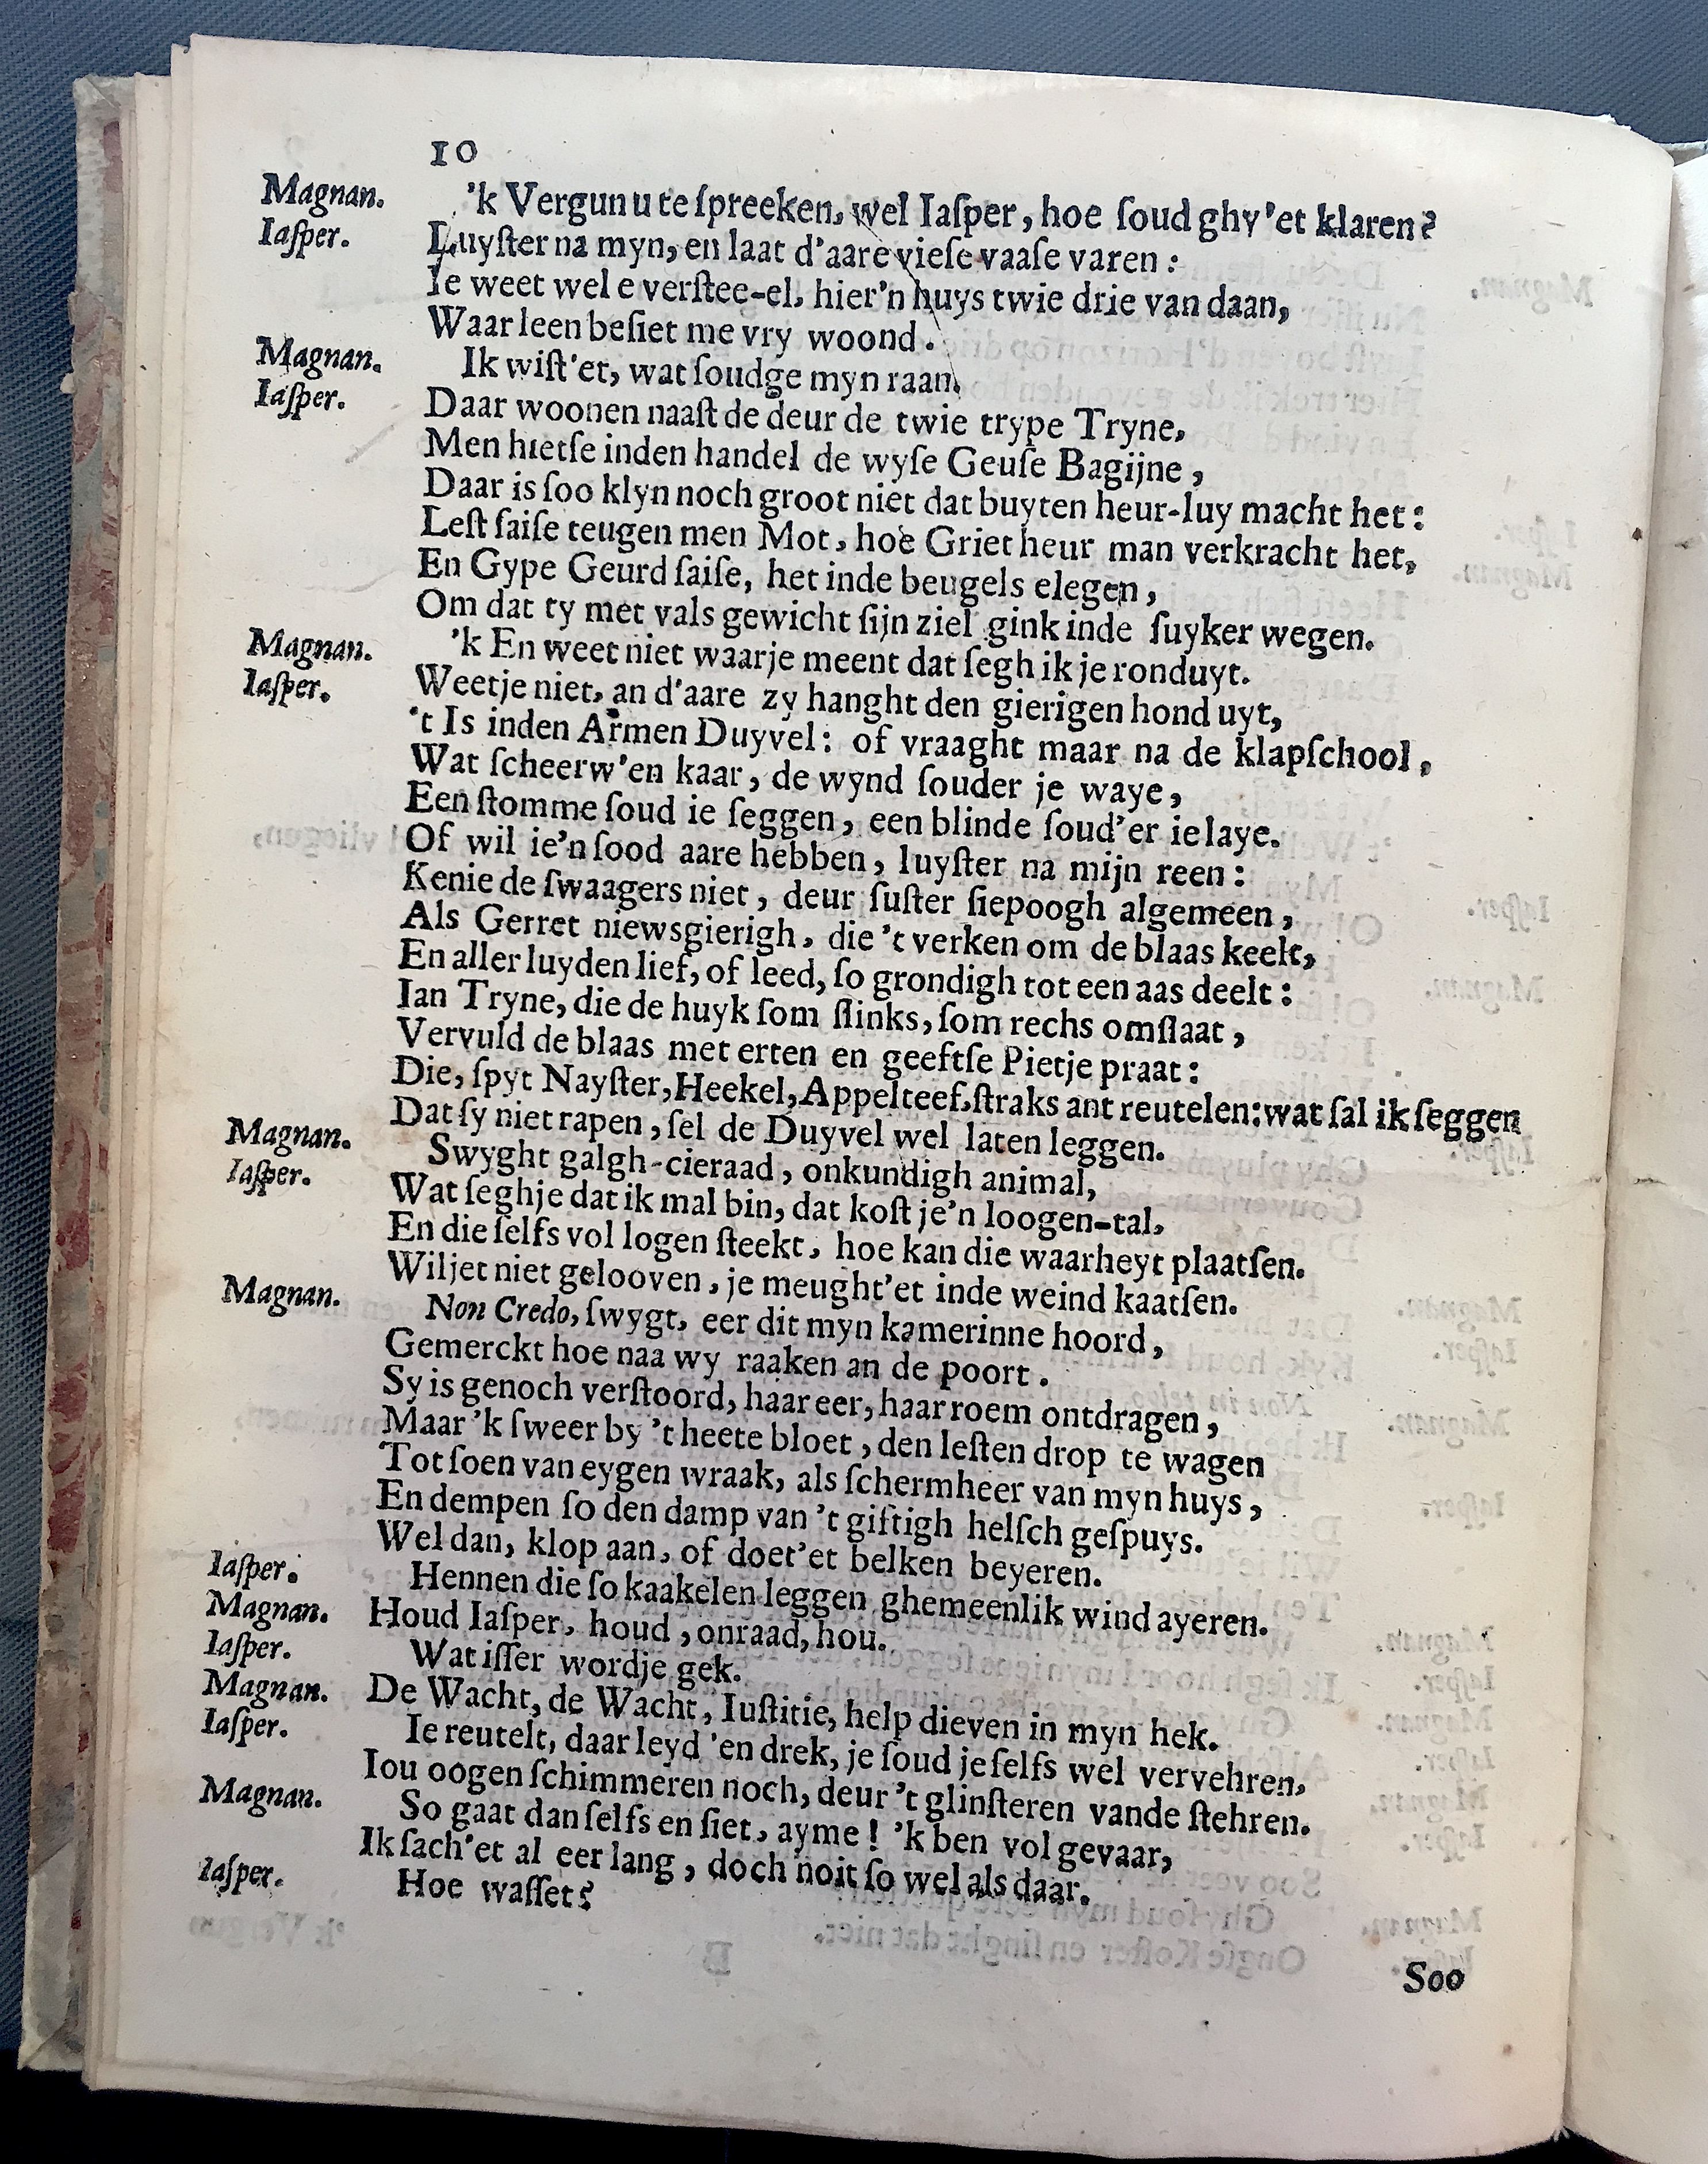 10
Magnan. 'k Vergun u te ſpreeken, wel Iaſper, hoe ſoud ghy 'et klaren?
Iaſper. Luyſter na myn, en laat d'aare vieſe vaaſe varen:
Ie weet wel e verſtee-el, hier'n huys twie drie van daan,
Waar leen beſiet me vry woond.
Magnan. Ik wiſt'et, wat ſoudge myn raan,
Iaſper. Daar woonen naaſt de deur de twie trype Tryne,
Men hietſe inden handel de wyſe Geuſe Bagijne,
Daar is ſoo klyn noch groot niet dat buyten heur-luy macht het:
Leſt ſaiſe teugen men Mot, hoe Griet heur man verkracht het,
En Gype Geurd ſaiſe, het inde beugels elegen,
Om dat ty met vals gewicht ſijn ziel gink inde ſuyker wegen.
Magnan. 'k En weet niet waarje meent dat ſegh ik je ronduyt.
Iaſper. Weetje niet, an d'aare zy hanght den gierigen hond uyt,
't Is inden Armen Duyvel: of vraaght maar na de klapſchool,
Wat ſcheerw'en kaar, de wynd ſouder je waye,
Een ſtomme ſoud ie ſeggen, een blinde ſoud'er ie laye.
Of wil ie'n ſood aare hebben, luyſter na mijn reen:
Kenie de ſwaagers niet, deur ſuſter ſiepoogh algemeen,
Als Gerret niewsgierigh, die 't verken om de blaas keelt,
En aller luyden lief, of leed, ſo grondigh tot een aas deelt:
Ian Tryne, die de huyk ſom ſlinks, ſom rechs omſlaat,
Vervuld de blaas met erten en geeftſe Pietje praat:
Die, ſpyt Nayſter, Heekel, Appelteef, ſtraks ant reutelen: wat ſal ik ſeggen
Dat ſy niet rapen, ſel de Duyvel wel laten leggen.
Magnan. Swyght galgh-cieraad, onkundigh animal,
Iaſper. Wat ſeghje dat ik mal bin, dat koſt je'n loogen-tal,
En die ſelfs vol logen ſteekt, hoe kan die waarheyt plaatſen.
Wiljet niet gelooven, je meught'et inde weind kaatſen.
Magnan. Non Credo, ſwygt, eer dit myn kamerinne hoord,
Gemerckt hoe naa wy raaken an de poort.
Sy is genoch verſtoord, haar eer, haar roem ontdragen,
Maar 'k ſweer by 't heete bloet, den leſten drop te wagen
Tot ſoen van eygen wraak, als ſchermheer van myn huys,
En dempen ſo den damp van 't giftigh helſch geſpuys.
Wel dan, klop aan, of doet'et belken beyeren.
Iaſper. Hennen die ſo kaakelen leggen ghemeenlik wind ayeren.
Magnan. Houd Iaſper, houd, onraad, hou.
Iaſper. Wat iſſer wordje gek.
Magnan. De Wacht, de Wacht, Iuſtitie, help dieven in myn hek.
Iaſper. Ie reutelt, daar leyd 'en drek, je ſoud je ſelfs wel vervehren,
Iou oogen ſchimmeren noch, deur 't glinſteren vande ſtehren.
Magnan. So gaat dan ſelfs en ſiet, ayme! 'k ben vol gevaar,
Ik ſach'et al eer lang, doch noit ſo wel als daar.
Iaſper. Hoe waſſet?
Soo